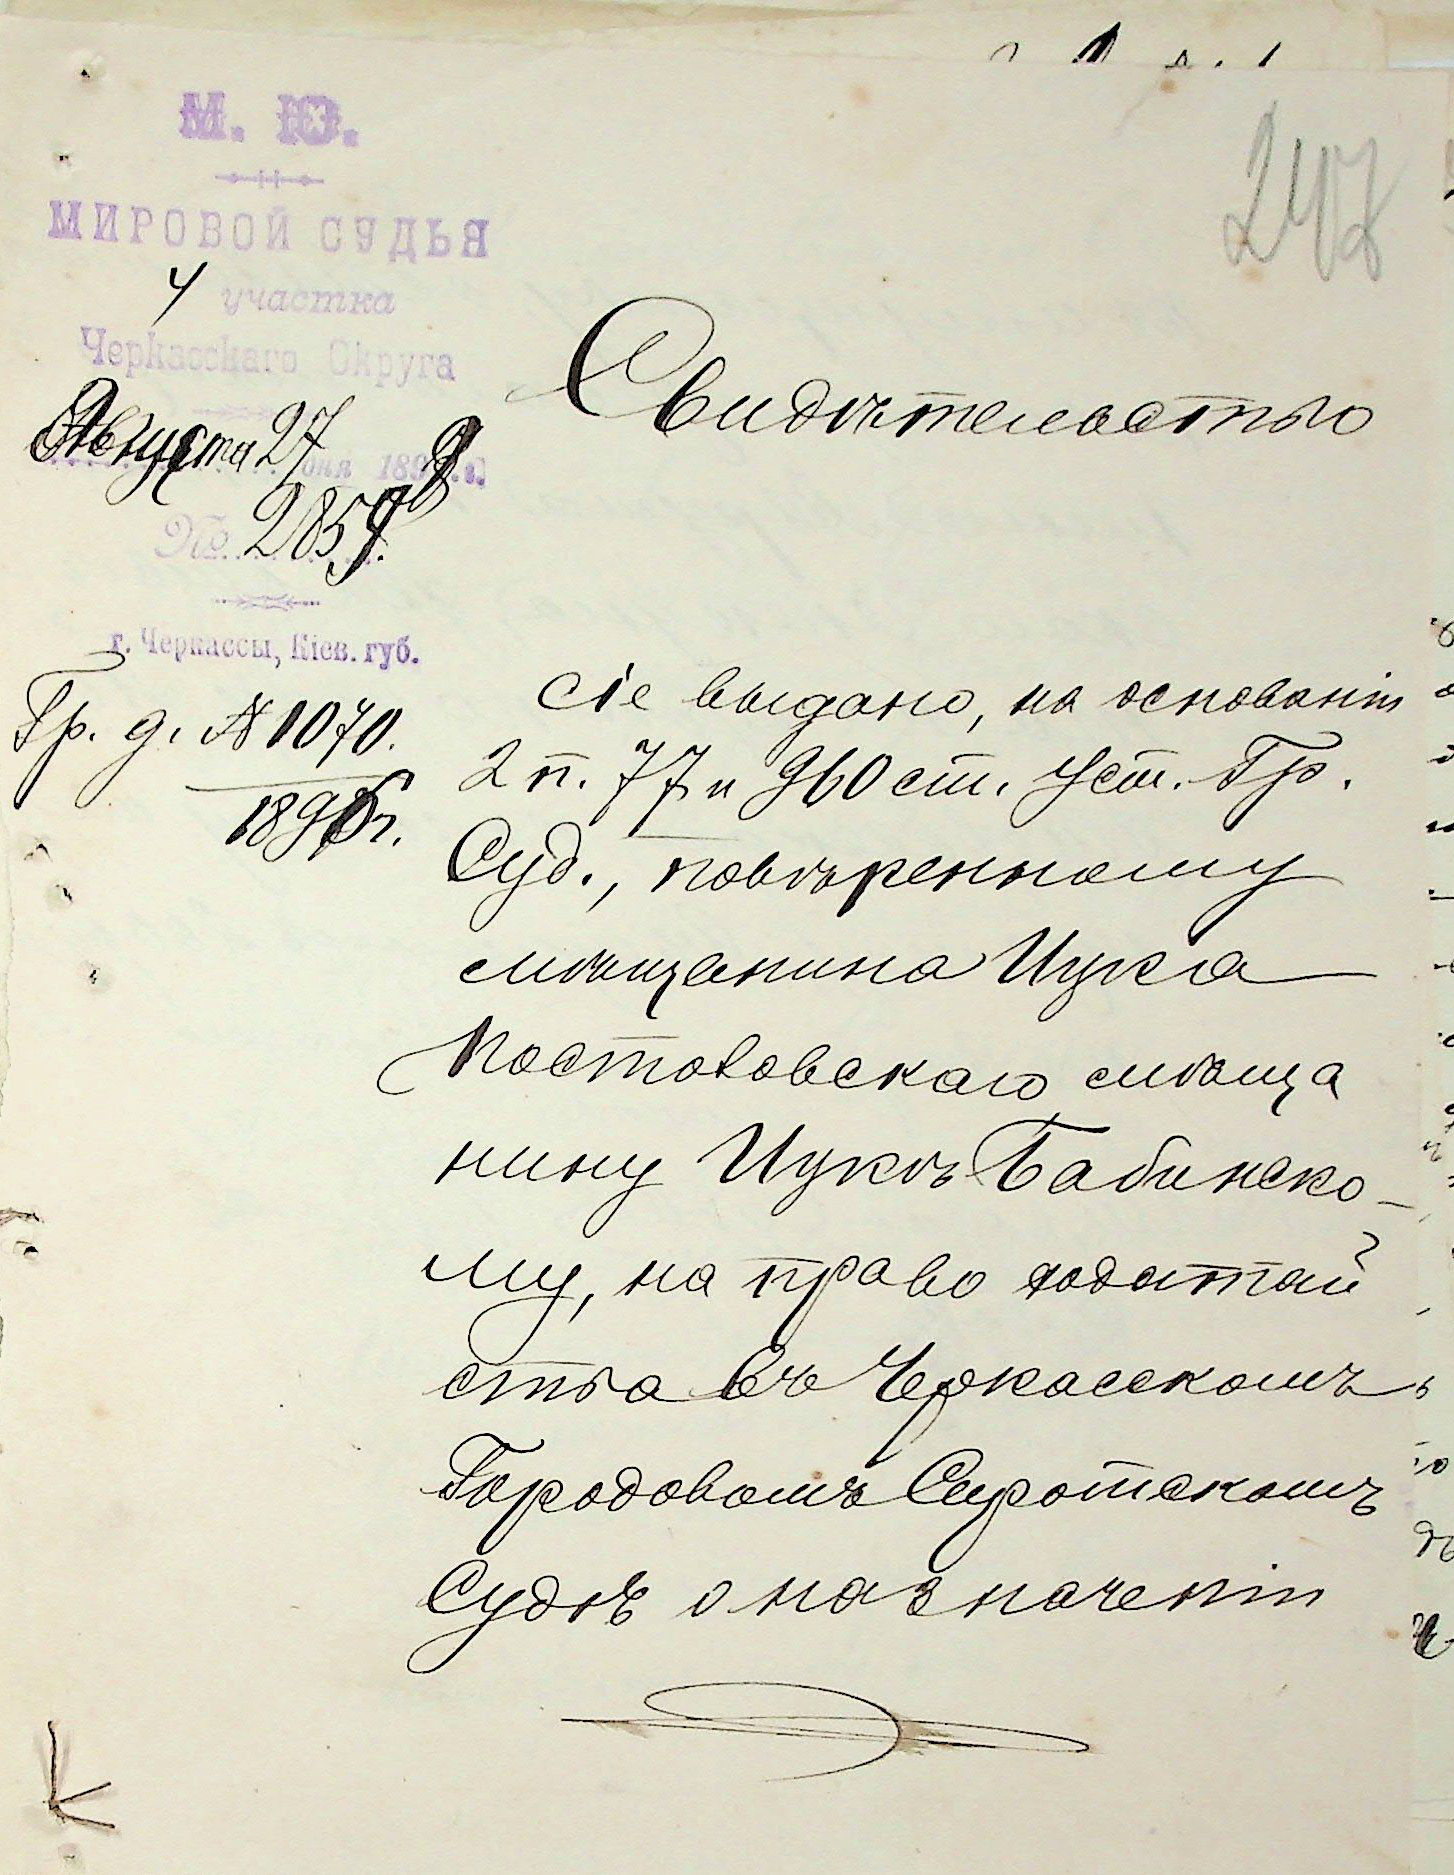 М. Ю.
МИРОВОЙ СУДЬЯ
4 участка
Черкасскаго Округа
Августа 27 дня 1898 г.
№ 2859.
г. Черкассы, Кіев. губ.
Гр. д. № 1070.
1896 г.
247
Свидѣтельство
сіе выдано, на основаніи
2 п. 77 и 960 ст. Уст. Гр.
Суд., повѣренному
мѣщанина Ицка
Постововскаго мѣща
нину Ицкѣ Бабинско-
му, на право ходатай
ства въ Черкасскомъ
Городовомъ Сиротскомъ
Судѣ о назначеніи